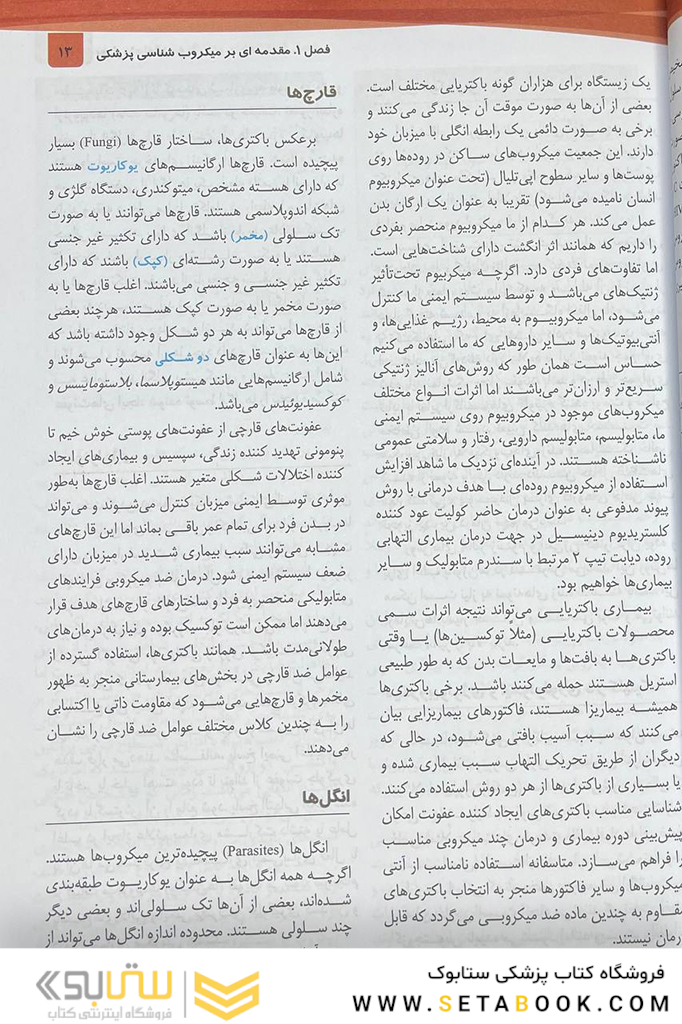 فصل ۱. مقدمه ای بر میکروب شناسی پزشکی
۱۳
یک زیستگاه برای هزاران گونه باکتریایی مختلف است.
بعضی از آن‌ها به صورت موقت آن جا زندگی می‌کنند و
برخی به صورت دائمی یک رابطه انگلی با میزبان خود
دارند. این جمعیت میکروب‌های ساکن در روده‌ها روی
پوست‌ها و سایر سطوح اپی‌تلیال (تحت عنوان میکروبیوم
انسان نامیده می‌شود) تقریبا به عنوان یک ارگان بدن
عمل می‌کند. هر کدام از ما میکروبیوم منحصر بفردی
را داریم که همانند اثر انگشت دارای شناخت‌هایی است.
اما تفاوت‌های فردی دارد. اگرچه میکربیوم تحت‌تأثیر
ژنتیک‌های می‌باشد و توسط سیستم ایمنی ما کنترل
می‌شود، اما میکروبیوم به محیط، رژیم غذایی‌ها، و
آنتی‌بیوتیک‌ها و سایر داروهایی که ما استفاده می‌کنیم
حساس است همان طور که روش‌های آنالیز ژنتیکی
سریع‌تر و ارزان‌تر می‌باشند اما اثرات انواع مختلف
میکروب‌های موجود در میکروبیوم روی سیستم ایمنی
ما، متابولیسم، متابولیسم دارویی، رفتار و سلامتی عمومی
ناشناخته هستند. در آینده‌ای نزدیک ما شاهد افزایش
استفاده از میکروبیوم روده‌ای با هدف درمانی با روش
پیوند مدفوعی به عنوان درمان حاضر کولیت عود کننده
کلستریدیوم دینیسیل در جهت درمان بیماری التهابی
روده، دیابت تیپ ۲ مرتبط با سندرم متابولیک و سایر
بیماری‌ها خواهیم بود.
بیماری باکتریایی می‌تواند نتیجه اثرات سمی
محصولات باکتریایی (مثلاً توکسین‌ها) یا وقتی
باکتری‌ها به بافت‌ها و مایعات بدن که به طور طبیعی
استریل هستند حمله می‌کنند باشد. برخی باکتری‌ها
همیشه بیماریزا هستند، فاکتورهای بیماریزایی بیان
می‌کنند که سبب آسیب بافتی می‌شود، در حالی که
دیگران از طریق تحریک التهاب سبب بیماری شده و
یا بسیاری از باکتری‌ها از هر دو روش استفاده می‌کنند.
شناسایی مناسب باکتری‌های ایجاد کننده عفونت امکان
پیش‌بینی دوره بیماری و درمان چند میکروبی مناسب
را فراهم می‌سازد. متاسفانه استفاده نامناسب از آنتی
میکروب‌ها و سایر فاکتورها منجر به انتخاب باکتری‌های
مقاوم به چندین ماده ضد میکروبی می‌گردد که قابل
درمان نیستند.
قارچ‌ها
برعکس باکتری‌ها، ساختار قارچ‌ها (Fungi) بسیار
پیچیده است. قارچ‌ها ارگانیسم‌های یوکاریوت هستند
که دارای هسته مشخص، میتوکندری، دستگاه گلژی و
شبکه اندوپلاسمی هستند. قارچ‌ها می‌توانند یا به صورت
تک سلولی (مخمر) باشد که دارای تکثیر غیر جنسی
هستند یا به صورت رشته‌ای (کپک) باشند که دارای
تکثیر غیر جنسی و جنسی می‌باشند. اغلب قارچ‌ها یا به
صورت مخمر یا به صورت کپک هستند، هرچند بعضی
از قارچ‌ها می‌تواند به هر دو شکل وجود داشته باشد که
این‌ها به عنوان قارچ‌های دو شکلی محسوب می‌شوند و
شامل ارگانیسم‌هایی مانند هیستوپلاسما، بلاستومایسس و
کوکسیدیوئیدس می‌باشد.
عفونت‌های قارچی از عفونت‌های پوستی خوش خیم تا
پنومونی تهدید کننده زندگی، سپسیس و بیماری‌های ایجاد
کننده اختلالات شکلی متغیر هستند. اغلب قارچ‌ها به‌طور
موثری توسط ایمنی میزبان کنترل می‌شوند و می‌تواند
در بدن فرد برای تمام عمر باقی بماند اما این قارچ‌های
مشابه می‌توانند سبب بیماری شدید در میزبان دارای
ضعف سیستم ایمنی شود. درمان ضد میکروبی فرایندهای
متابولیکی منحصر به فرد و ساختارهای قارچ‌های هدف قرار
می‌دهند اما ممکن است توکسیک بوده و نیاز به درمان‌های
طولانی‌مدت باشد. همانند باکتری‌ها، استفاده گسترده از
عوامل ضد قارچی در بخش‌های بیمارستانی منجر به ظهور
مخمرها و قارچ‌هایی می‌شود که مقاومت ذاتی یا اکتسابی
را به چندین کلاس مختلف عوامل ضد قارچی را نشان
می‌دهند.
انگل‌ها
انگل‌ها (Parasites) پیچیده‌ترین میکروب‌ها هستند.
اگرچه همه انگل‌ها به عنوان یوکاریوت طبقه‌بندی
شده‌اند، بعضی از آن‌ها تک سلولی‌اند و بعضی دیگر
چند سلولی هستند. محدوده اندازه انگل‌ها می‌تواند از
فروشگاه کتاب پزشکی ستابوک
WWW.SETABOOK.COM
ستابوک
فروشگاه اینترنتی کتاب